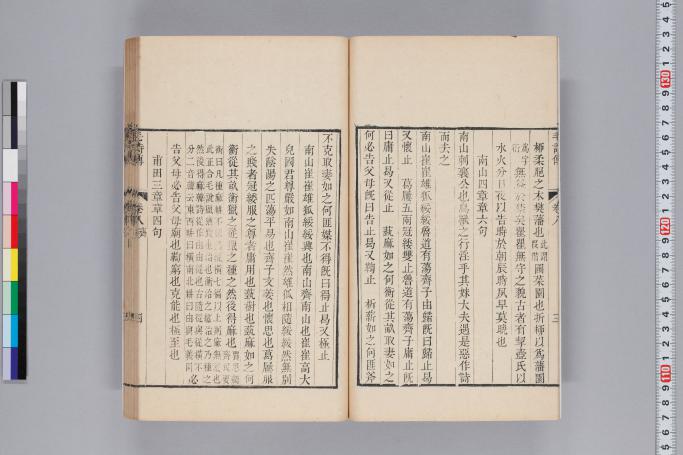 柳柔脃之木樊藩也
圃菜園也折柳以爲藩園
無益於禁矣瞿瞿無守之貌古者有挈壺氏以
水火分日夜以告時於朝辰時夙早莫晚也
南山四章章六句
南山刺襄公也鳥獸之行淫乎其妹大夫遇是惡作詩
而去之
南山崔崔雄狐綏綏魯道有蕩齊子由歸既曰歸止曷
又懷止 葛屨五兩冠緌雙止魯道有蕩齊子庸止既
曰庸止曷又從止 蓺麻如之何衡從其畝取妻如之
何必告父母既曰告止曷又鞠止 析薪如之何匪斧
不克取妻如之何匪媒不得既曰得止曷又極止
南山崔崔雄狐綏綏興也南山齊南山也崔崔高大
國君尊嚴如南山崔崔然雄狐相隨綏綏然無別
失陰陽之匹蕩平易也齊子文姜也懷思也葛屨服
之賤者冠緌服之尊者庸用也蓺樹也蓺麻如之何
衡從其畝衡獵之從獵之種之然後得麻也
必
告父母必告父母廟也鞠窮也克能也極至也
甫田三章章四句
毛詩傳
卷八
三
四